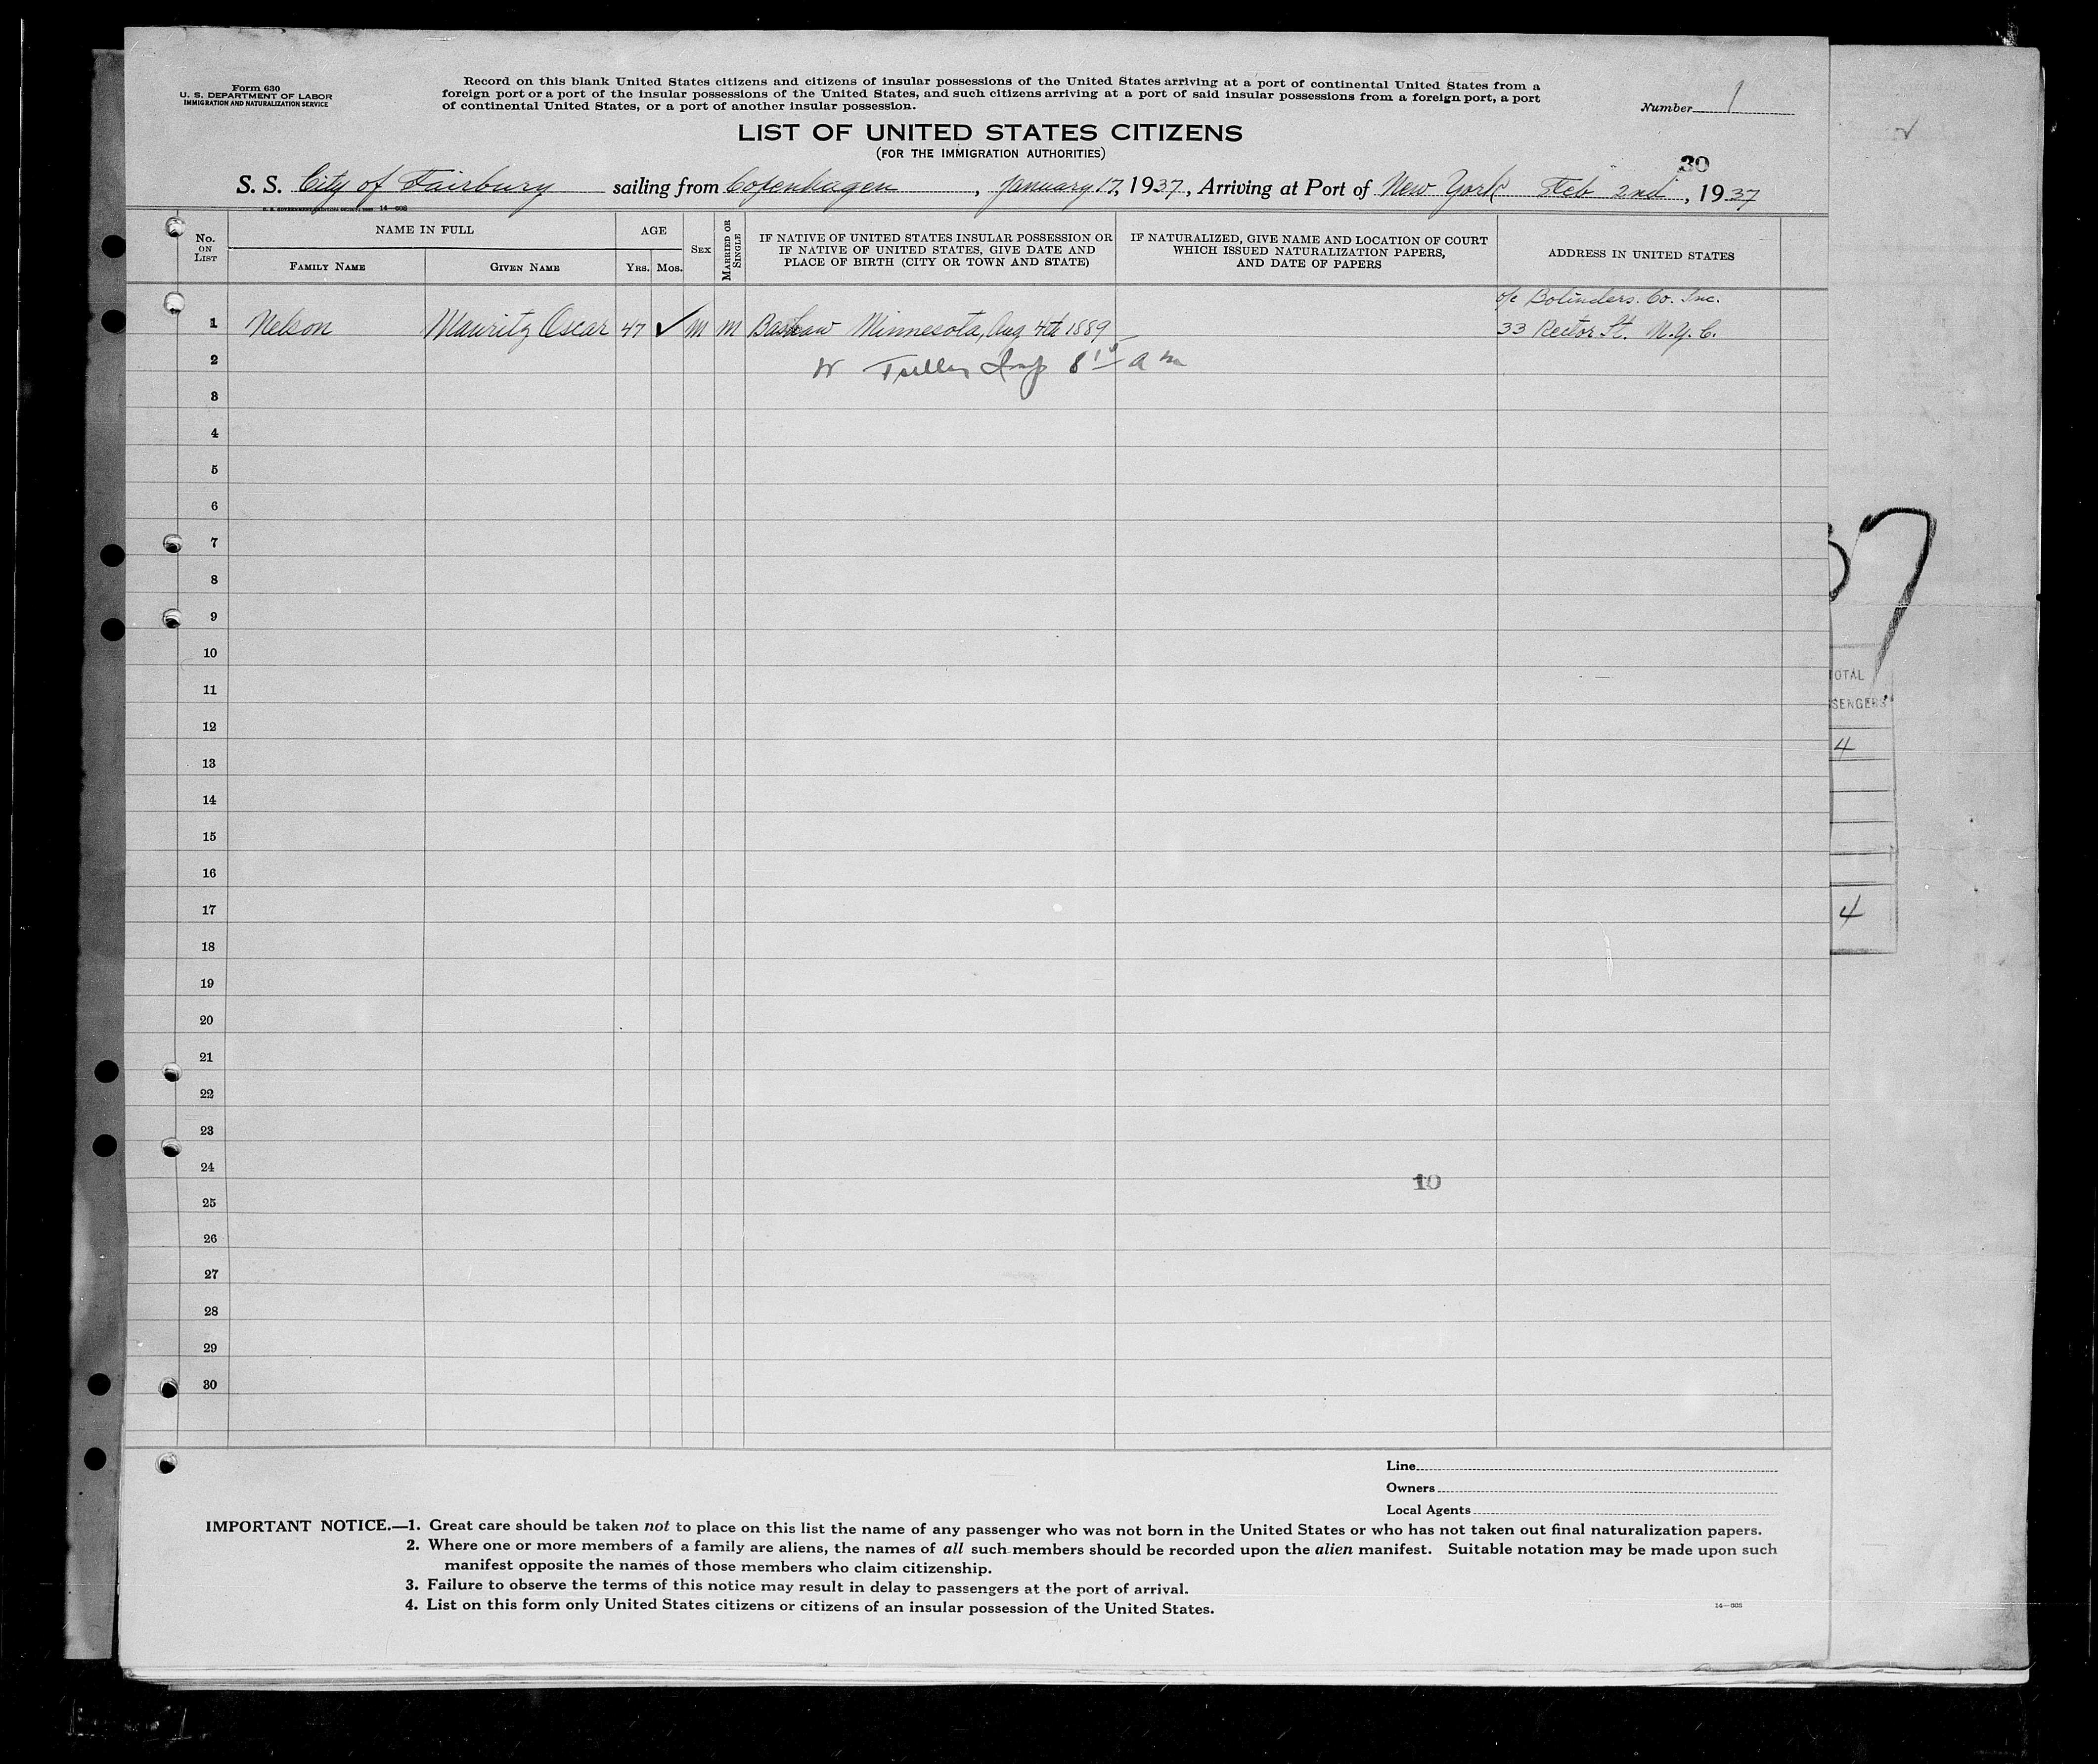 Form 630
U. S. DEPARTMENT OF LABOR
IMMIGRATION AND NATURALIZATION SERVICE
Record on this blank United States citizens and citizens of insular possessions of the United States arriving at a port of continental United States from a
foreign port or a port of the insular possessions of the United States, and such citizens arriving at a port of said insular possessions from a foreign port, a port
of continental United States, or a port of another insular possession.
Number 1
LIST OF UNITED STATES CITIZENS
(FOR THE IMMIGRATION AUTHORITIES)
30
S. S. City of Fairbury sailing from Copenhagen, January 17, 1937, Arriving at Port of New York Feb 2nd, 1937
14—608
No. ON LIST
NAME IN FULL
FAMILY NAME
GIVEN NAME
AGE
YRS.
MOS.
SEX
MARRIED OR SINGLE
IF NATIVE OF UNITED STATES INSULAR POSSESSION OR
IF NATIVE OF UNITED STATES, GIVE DATE AND
PLACE OF BIRTH (CITY OR TOWN AND STATE)
IF NATURALIZED, GIVE NAME AND LOCATION OF COURT
WHICH ISSUED NATURALIZATION PAPERS,
AND DATE OF PAPERS
ADDRESS IN UNITED STATES
c/o Bolinders. Co. Inc.
1 Nelson Mauritz Oscar 47 ✓ M M Bashaw Minnesota, Aug 4th 1889 33 Rector St. N.Y.C.
2 Insp 8 am
3
4
5
6
7
8
9
10
11
12
13
14
15
16
17
18
19
20
21
22
23
24
10
25
26
27
28
29
30
7
OTAL
SENGERS
4
4
Line
Owners
Local Agents
IMPORTANT NOTICE.—1. Great care should be taken not to place on this list the name of any passenger who was not born in the United States or who has not taken out final naturalization papers.
2. Where one or more members of a family are aliens, the names of all such members should be recorded upon the alien manifest. Suitable notation may be made upon such
manifest opposite the names of those members who claim citizenship.
3. Failure to observe the terms of this notice may result in delay to passengers at the port of arrival.
4. List on this form only United States citizens or citizens of an insular possession of the United States.
14—608